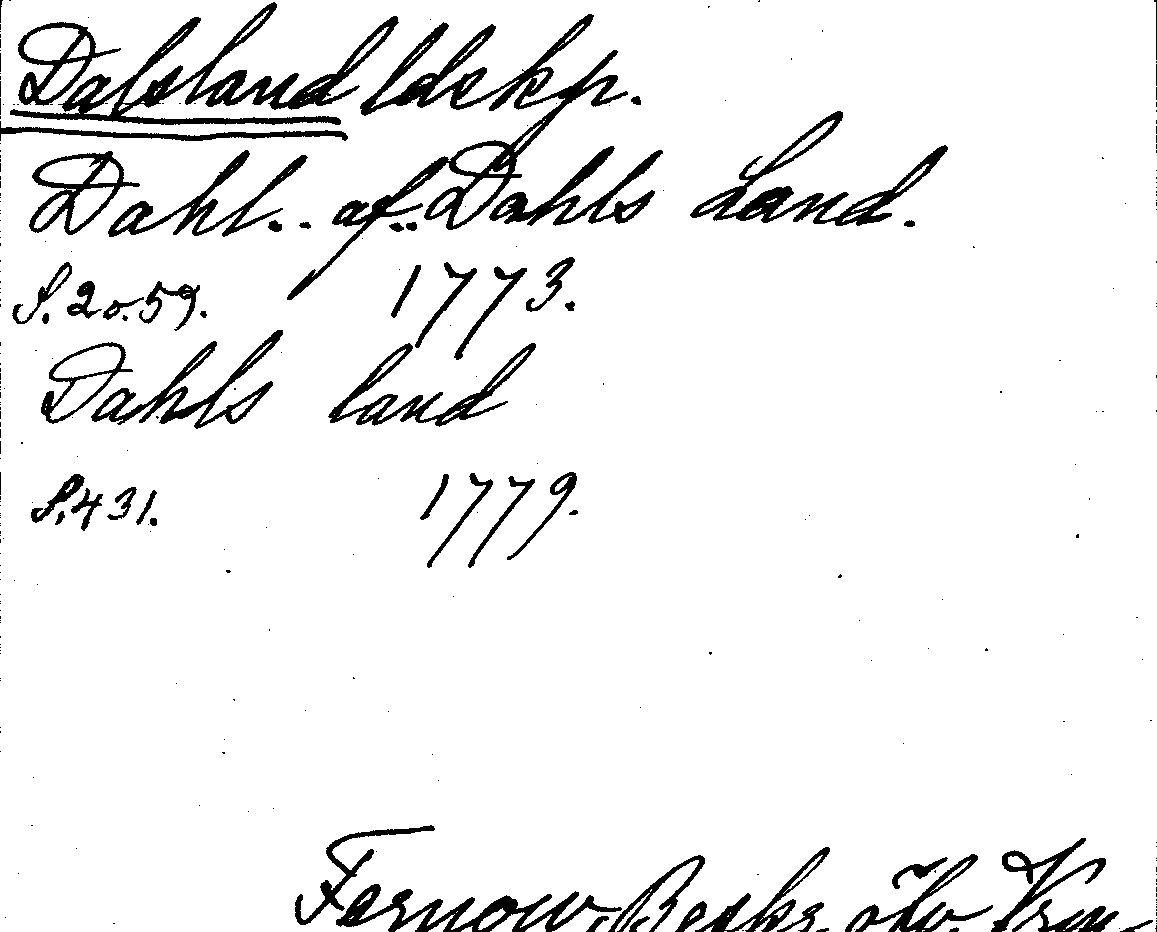 Dalsland ldskp.
Dahl.. af.. Dahls Land.
S. 2 o. 59. 1773.
Dahls land
S. 431. 1779.
Fernow, Beskr. öfv. Vrm